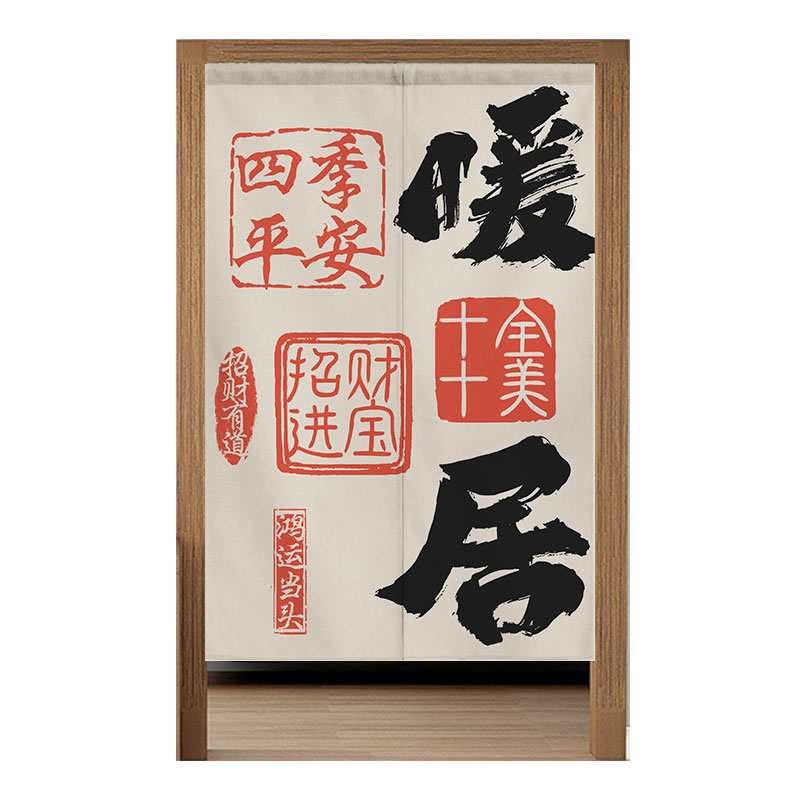 暖居
十全
十美
四季
平安
招财
进宝
招财有道
鸿运当头